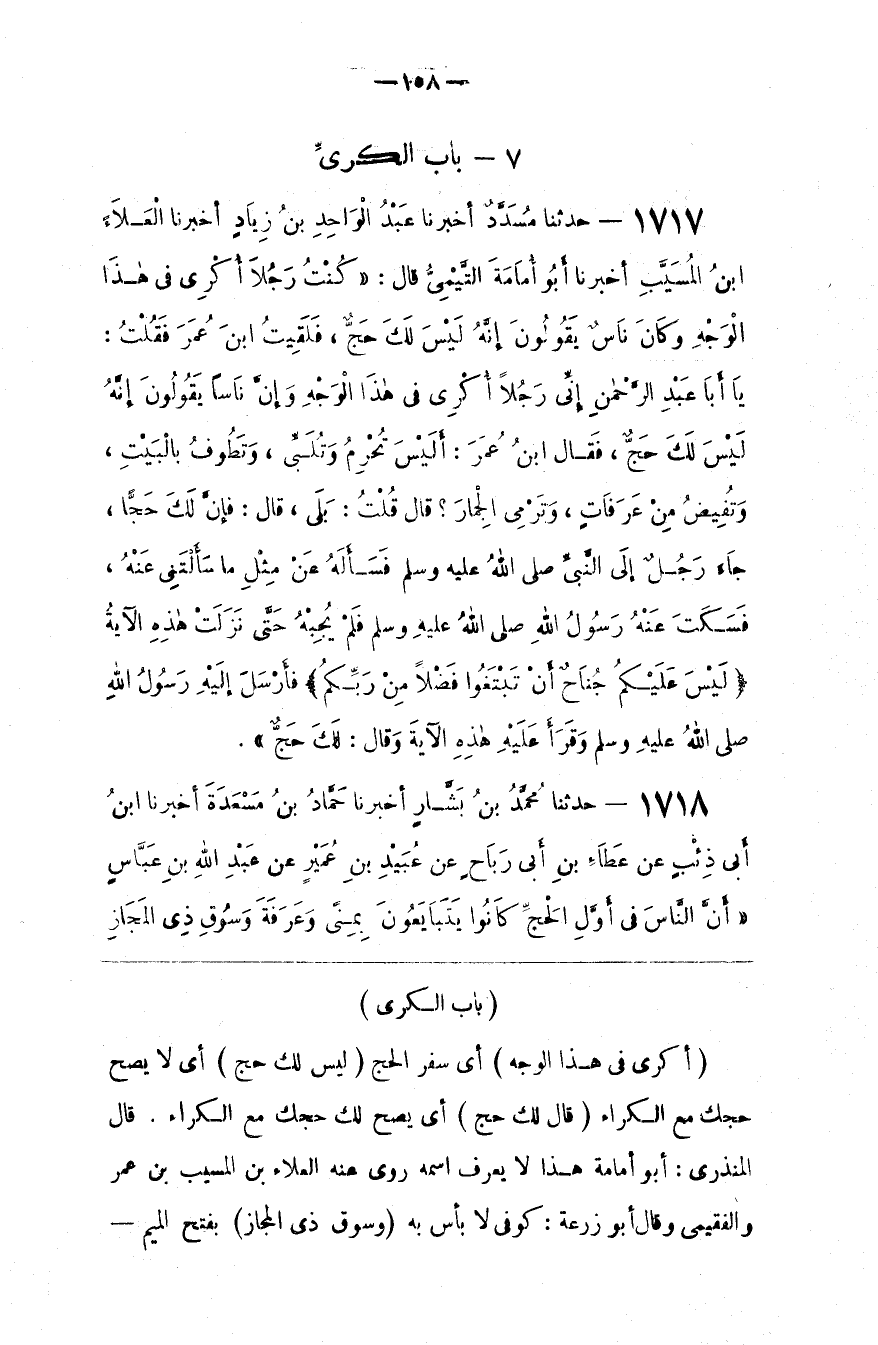 — ١٥٨ —
٧ – باب الكرىِّ
١٧١٧ – حدثنا مُسَدَّدٌ أخبرنا عَبْدُ الْوَاحِدِ بنُ زِيَادٍ أخبرنا الْعَـلاَءِ
ابنُ المُسَيَّبِ أخبرنا أَبُو أُمَامَةَ التَّيْمِىُّ قال : « كُنْتُ رَجُلاَ أُكْرِى فى هٰـذَا
الْوَجْهِ وَكَانَ نَاسٌ يَقُولُونَ إِنَّهُ لَيْسَ لَكَ حَجٌّ ، فَلَقِيتُ ابنَ عُمَرَ فَقُلْتُ :
يَا أَبَا عَبْدِ الرَّحْمٰنِ إِنِّى رَجُلاً أُكْرِى فى هٰذَا الْوَجْهِ وَإِنَّ نَاساً يَقُولُونَ إِنَّهُ
لَيْسَ لَكَ حَجٌّ ، فَقَـال ابنُ عُمَرَ : أَلَيْسَ تُحْرِمُ وَتُلَـبِّى ، وَتَطُوفُ بالْبَيْتِ ،
وَتُفِيضُ مِنْ عَرَفَاتٍ ، وَتَرْمِى الْجِمَارَ ؟ قال قُلْتُ : بَلَى ، قال : فإِنَّ لَكَ حَجًّا ،
جاءَ رَجُـلٌ إِلَى النَّبىِّ صلى اللهُ عليه وسلم فَسَـأَلَهُ عَنْ مِثْلِ ما سَأَلْتَنِى عَنْهُ ،
فَسَـكَتَ عَنْهُ رَسُولُ اللهِ صلى اللهُ عليهِ وسلم فَلَمْ يُجِبْهُ حَتَّى نَزَلَتْ هٰذِهِ الآيَةُ
﴿ لَيْسَ عَلَيْـكُمْ جُنَاحٌ أَنْ تَبْتَغُوا فَضْلاً مِنْ رَبِّـكُمْ ﴾ فأَرْسَلَ إِلَيْهِ رَسُولُ اللهِ
صلى اللهُ عليهِ وسلم وَقَرَأَ عَلَيْهِ هٰذِهِ الآيَةَ وَقال : لَكَ حَجٌّ » .
١٧١٨ – حدثنا مُحمَّدُ بنُ بَشَّـارٍ أخبرنا حَمَّادُ بنُ مَسْعَدَةَ أخبرنا ابنُ
أَبى ذِئْبٍ عن عَطَاءِ بنِ أَبى رَبَاحٍ عن عُبَيْدِ بنِ عُمَيْرٍ عن عَبْدِ اللهِ بنِ عَبَّاسٍ
« أَنَّ النَّاسَ فى أَوَّلِ الْحَجِّ كَانُوا يَتَبَايَعُونَ بِمِـنًى وَعَرَفَةَ وَسُوقِ ذِى المَجَازِ
( باب الـكرى )
( أكرى فى هـذا الوجه ) أى سفر الحج ( ليس لك حج ) أى لا يصح
حجك مع الـكراء ( قال لك حج ) أى يصح لك حجك مع الـكراء . قال
المنذرى : أبو أمامة هـذا لا يعرف اسمه روى عنه العلاء بن المسيب بن عمر
والفقيمى وقال أبو زرعة : كوفى لا بأس به ( وسوق ذى المجاز ) بفتح الميم —